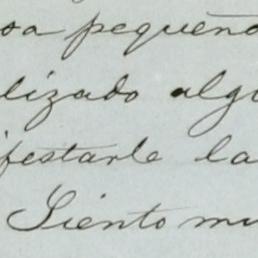 sa pequeño
lizado algu
ifestarle la
Siento mu